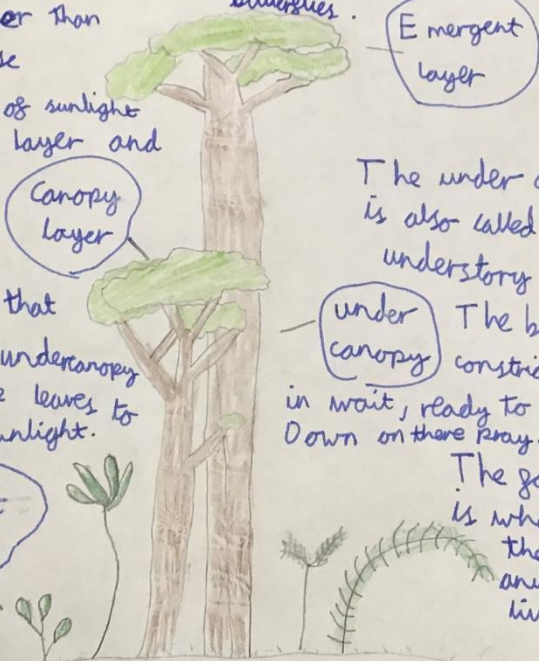 er than
se
of sunlight
layer and
Canopy
layer
that
undercanopy
leaves to
unlight.
butterflies.
Emergent
layer
The under
is also called
understory
under
canopy
The b
constric
in wait, ready to
Down on there pray.
The ga
is whe
the
anu
liv